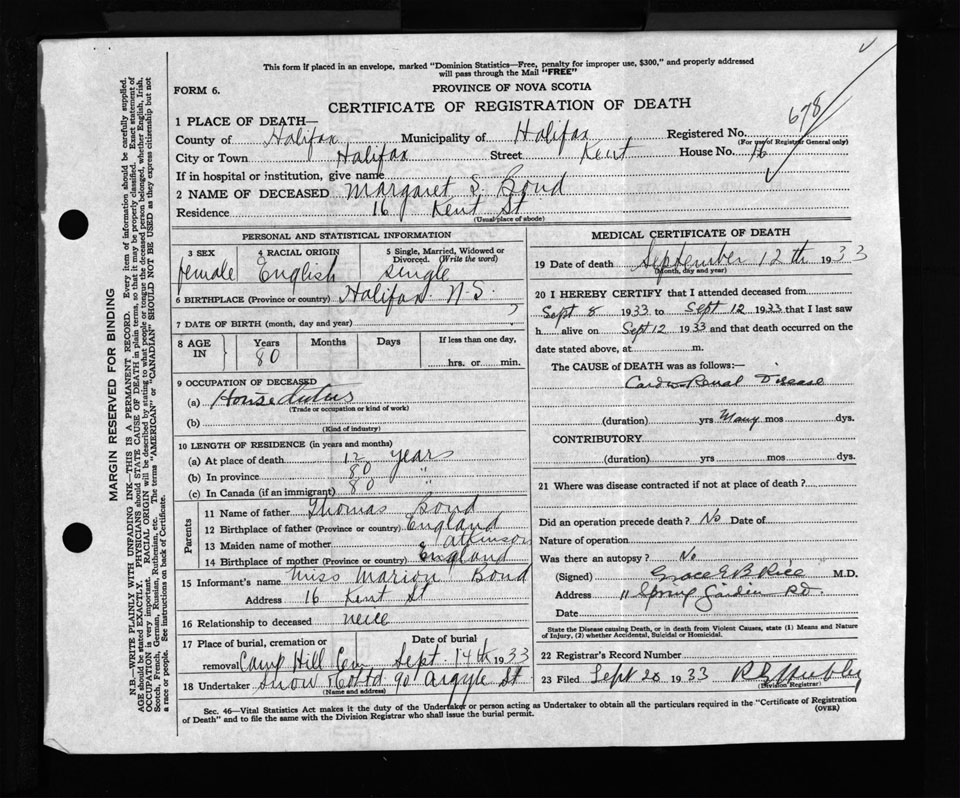 This form if placed in an envelope, marked "Dominion Statistics—Free, penalty for improper use, $300," and properly addressed
will pass through the Mail "FREE"
FORM 6.
PROVINCE OF NOVA SCOTIA
CERTIFICATE OF REGISTRATION OF DEATH
678
1 PLACE OF DEATH—
County of Halifax Municipality of Halifax Registered No.
(For use of Registrar General only)
City or Town Halifax Street Kent House No. 16
If in hospital or institution, give name
2 NAME OF DECEASED Margaret S. Bond
Residence 16 Kent St
(Usual place of abode)
MARGIN RESERVED FOR BINDING
N.B.—WRITE PLAINLY WITH UNFADING INK—THIS IS A PERMANENT RECORD. Every item of information should be carefully supplied.
AGE should be stated EXACTLY. PHYSICIANS should STATE CAUSE OF DEATH in plain terms, so that it may be properly classified. Exact statement of
OCCUPATION is very important. RACIAL ORIGIN will be described by stating to what people or tongue the deceased person belonged, whether English, Irish,
Scotch, French, German, Russian, Ruthenian, etc. The terms "AMERICAN" or "CANADIAN" SHOULD NOT BE USED as they express citizenship but not
a race or people. See instructions on back of Certificate.
PERSONAL AND STATISTICAL INFORMATION
3 SEX
female
4 RACIAL ORIGIN
English
5 Single, Married, Widowed or
Divorced. (Write the word)
single
6 BIRTHPLACE (Province or country) Halifax N.S.
7 DATE OF BIRTH (month, day and year)
8 AGE IN
Years Months Days If less than one day,
80
hrs. or min.
9 OCCUPATION OF DECEASED
(a) House duties
(Trade or occupation or kind of work)
(b)
(Kind of industry)
10 LENGTH OF RESIDENCE (in years and months)
(a) At place of death 12 years
(b) In province 80 "
(c) In Canada (if an immigrant) 80
Parents
11 Name of father Thomas Bond
12 Birthplace of father (Province or country) England
13 Maiden name of mother Atkinson
14 Birthplace of mother (Province or country) England
15 Informant's name Miss Marion Bond
Address 16 Kent St
16 Relationship to deceased neice
17 Place of burial, cremation or Date of burial
removal Camp Hill Cem Sept. 14th 1933
18 Undertaker Snow & Co Ltd 90 Argyle St
(Name and address)
MEDICAL CERTIFICATE OF DEATH
19 Date of death September 12th 1933
(Month, day and year)
20 I HEREBY CERTIFY that I attended deceased from
Sept 8 1933 to Sept 12 1933 that I last saw
h alive on Sept 12 1933 and that death occurred on the
date stated above, at m.
The CAUSE of DEATH was as follows:—
Cardio-Renal Disease
(duration) yrs Many mos dys.
CONTRIBUTORY
(duration) yrs mos dys.
21 Where was disease contracted if not at place of death?
Did an operation precede death? No Date of
Nature of operation
Was there an autopsy? No
(Signed) Grace E B Rice M.D.
Address 11 Spring Garden Rd.
Date
State the Disease causing Death, or in death from Violent Causes, state (1) Means and Nature
of Injury, (2) whether Accidental, Suicidal or Homicidal.
22 Registrar's Record Number
23 Filed Sept 20 1933
(Division Registrar)
Sec. 46—Vital Statistics Act makes it the duty of the Undertaker or person acting as Undertaker to obtain all the particulars required in the "Certificate of Registration
of Death" and to file the same with the Division Registrar who shall issue the burial permit.
(OVER)